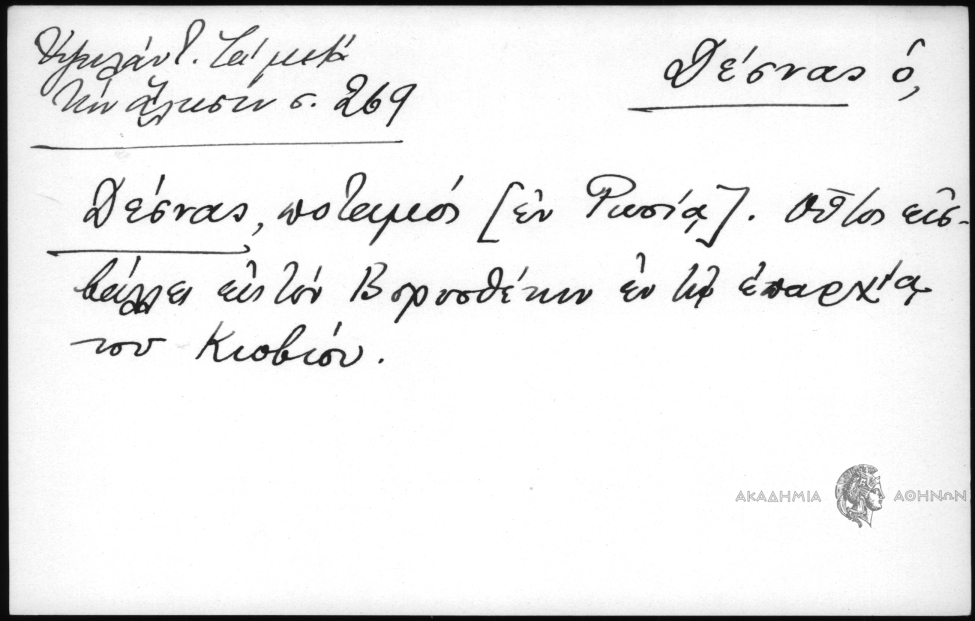 Ὑψηλάντ. Τὰ μετὰ
τὴν Ἅλωσιν σ. 269
Δέσνας ὁ,
Δέσνας, ποταμὸς [ἐν Ρωσίᾳ]. Οὗτος εἰσ-
βάλλει εἰς τὸν Βορυσθένην ἐν τῇ ἐπαρχίᾳ
του Κιοβίου.
ΑΚΑΔΗΜΙΑ ΑΘΗΝΩΝ